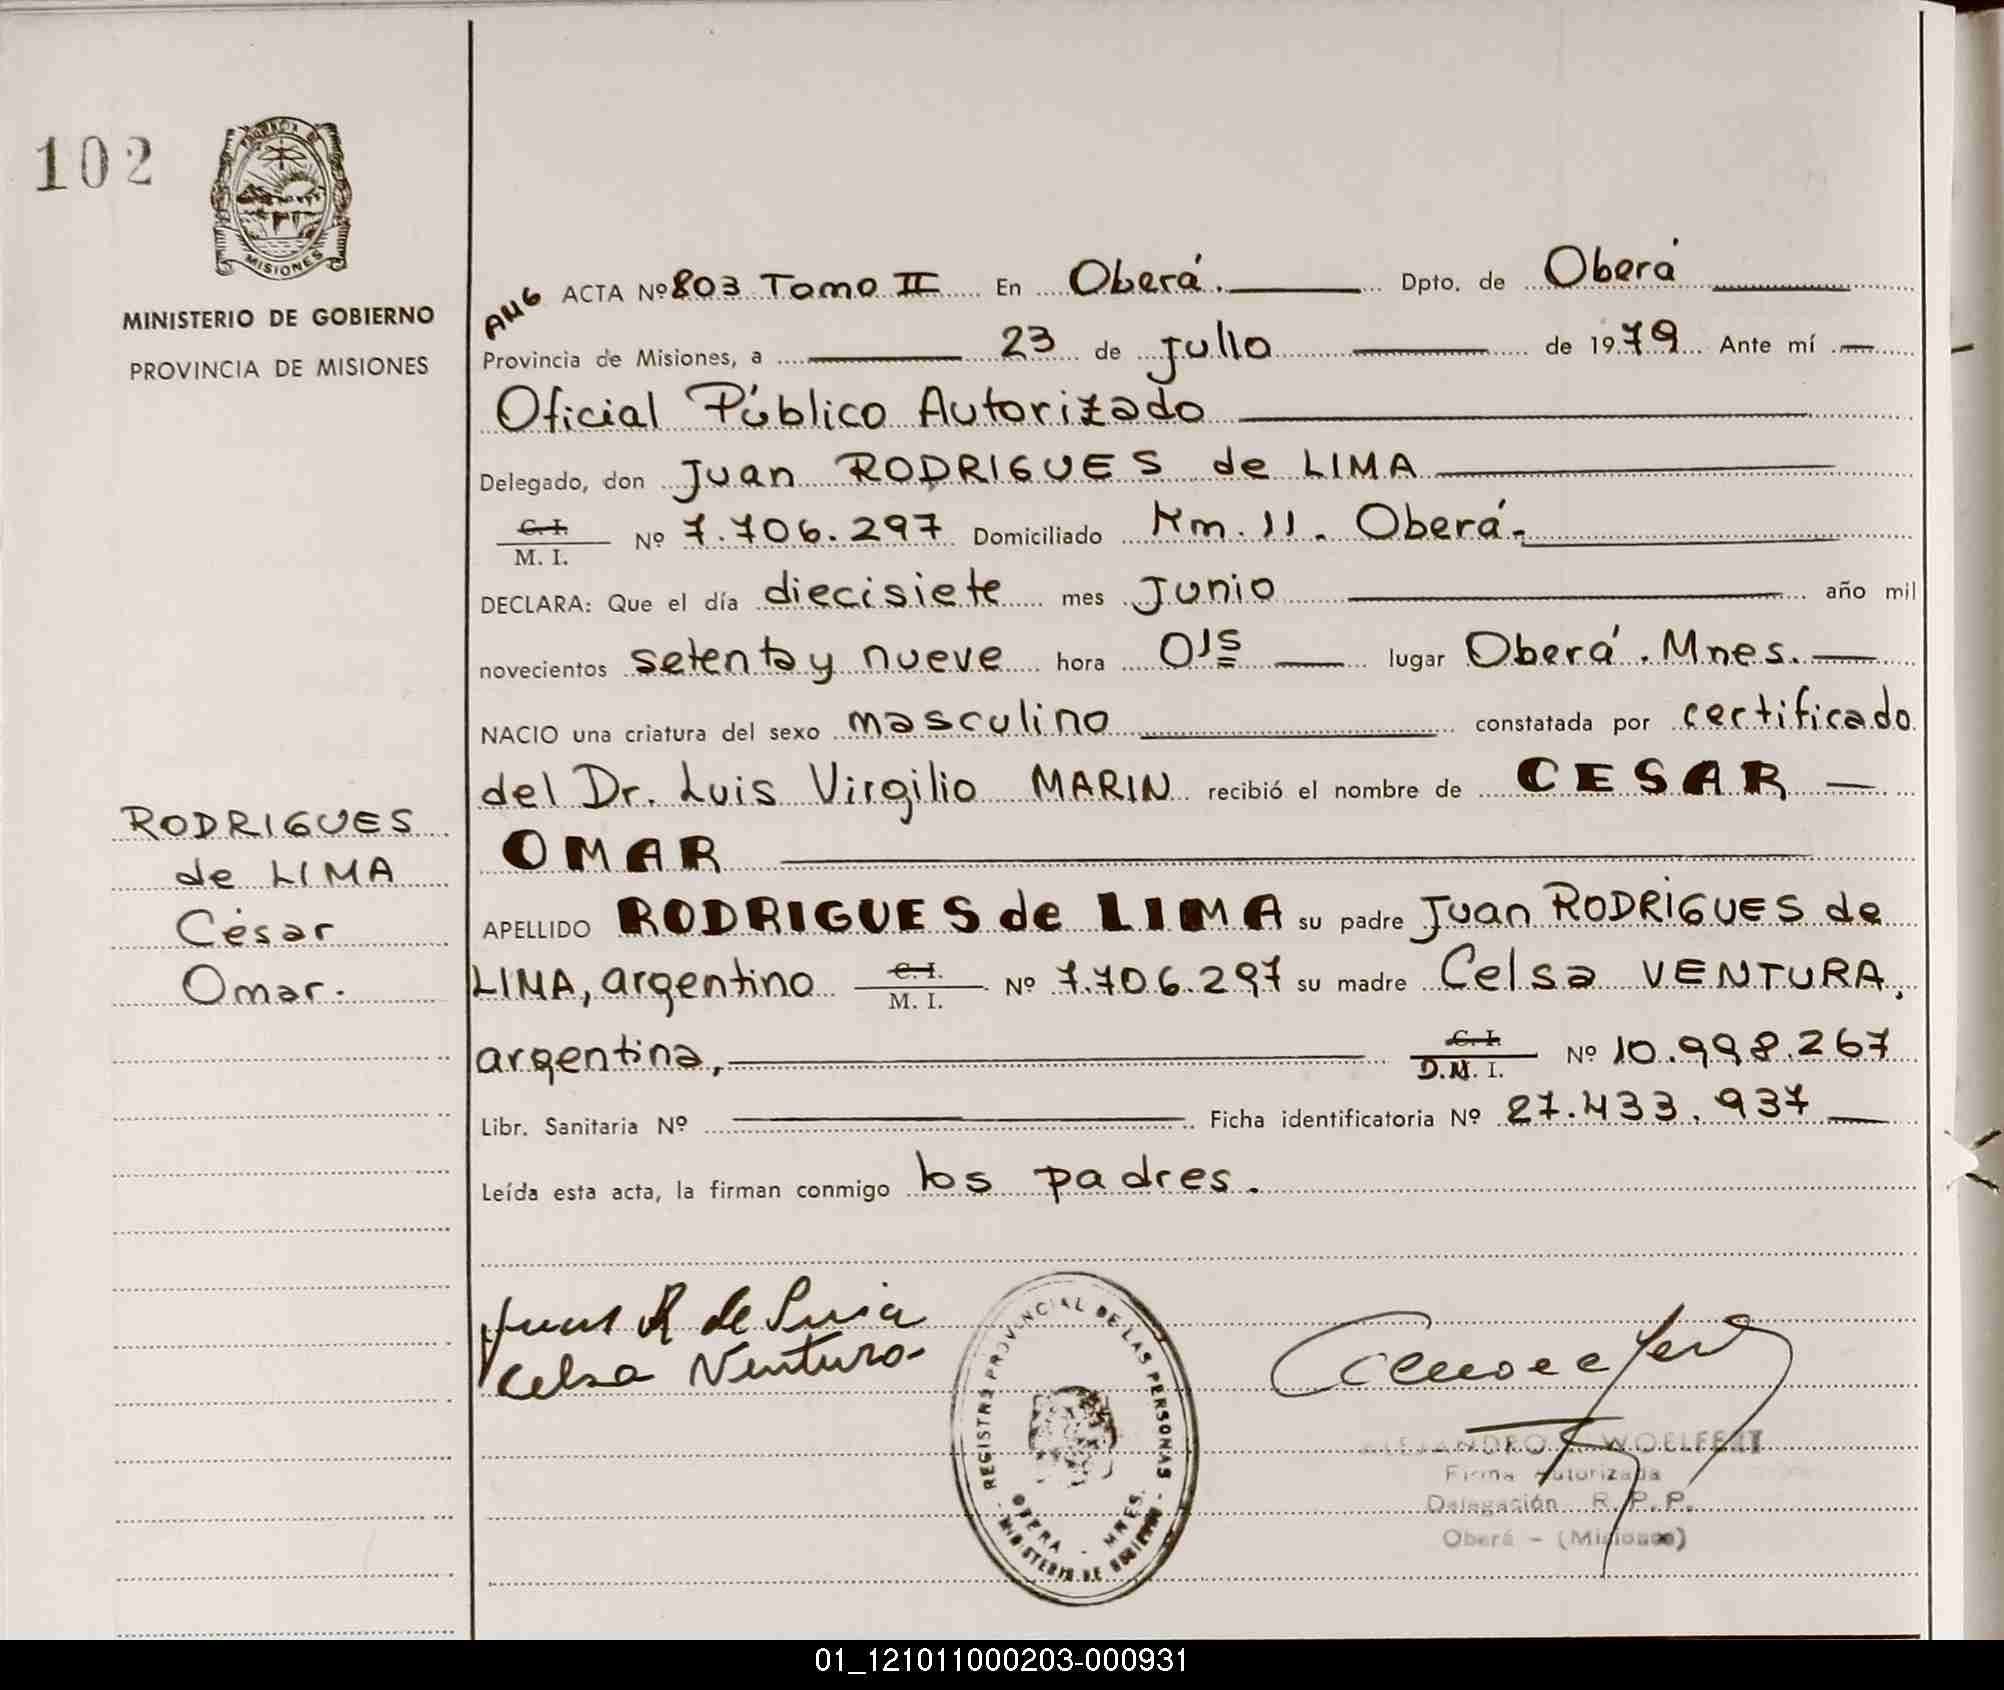 102
PROVINCIA DE
MISIONES
MINISTERIO DE GOBIERNO
PROVINCIA DE MISIONES
RODRIGUES
de LIMA
César
Omar.
ANG ACTA Nº 803 Tomo II En Oberá. Dpto. de Oberá
Provincia de Misiones, a 23 de julio de 1979 Ante mí
Oficial Público Autorizado
Delegado, don Juan RODRIGUES de LIMA
C. I.
M. I. Nº 7.706.297 Domiciliado Km. 11. Oberá.
DECLARA: Que el día diecisiete mes Junio año mil
novecientos setenta y nueve hora 01s lugar Oberá. Mnes.
NACIO una criatura del sexo masculino constatada por certificado
del Dr. Luis Virgilio MARIN recibió el nombre de CESAR
OMAR
APELLIDO RODRIGUES de LIMA su padre Juan RODRIGUES de
LIMA, argentino C. I. M. I. Nº 7.706.297 su madre Celsa VENTURA,
argentina, C. I. D.N. I. Nº 10.998.267
Libr. Sanitaria Nº Ficha identificatoria Nº 27.433.937
Leída esta acta, la firman conmigo los padres.
Juan R de Lima
Celsa Ventura
REGISTRO PROVINCIAL DE LAS PERSONAS
OBERA - MNES.
MINISTERIO DE GOBIERNO
ALEJANDRO WOELFERT
Firma Autorizada
Delegación R. P. P.
Oberá - (Misiones)
01_121011000203-000931